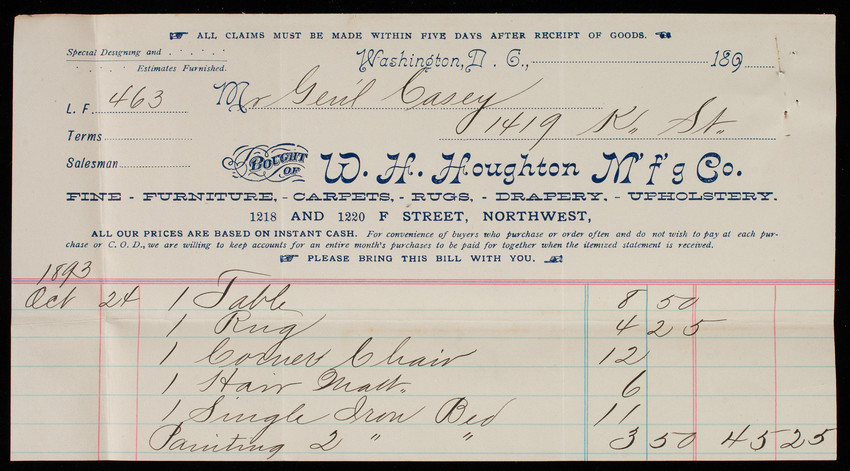 ALL CLAIMS MUST BE MADE WITHIN FIVE DAYS AFTER RECEIPT OF GOODS.
Special Designing and
Estimates Furnished.
Washington, D. C., 189
L. F. 463
Mr Genl Casey
1419 K. St.
Terms
Salesman
BOUGHT OF W. H. Houghton M'f'g Co.
FINE - FURNITURE, - CARPETS, - RUGS, - DRAPERY, - UPHOLSTERY.
1218 AND 1220 F STREET, NORTHWEST,
ALL OUR PRICES ARE BASED ON INSTANT CASH. For convenience of buyers who purchase or order often and do not wish to pay at each pur-
chase or C. O. D., we are willing to keep accounts for an entire month's purchases to be paid for together when the itemized statement is received.
PLEASE BRING THIS BILL WITH YOU.
1893
Oct 24 1 Table 8 50
1 Rug 4 25
1 Corner Chair 12
1 Hair Matt. 6
1 Single Iron Bed 11
Painting 2 " " 3 50 45 25